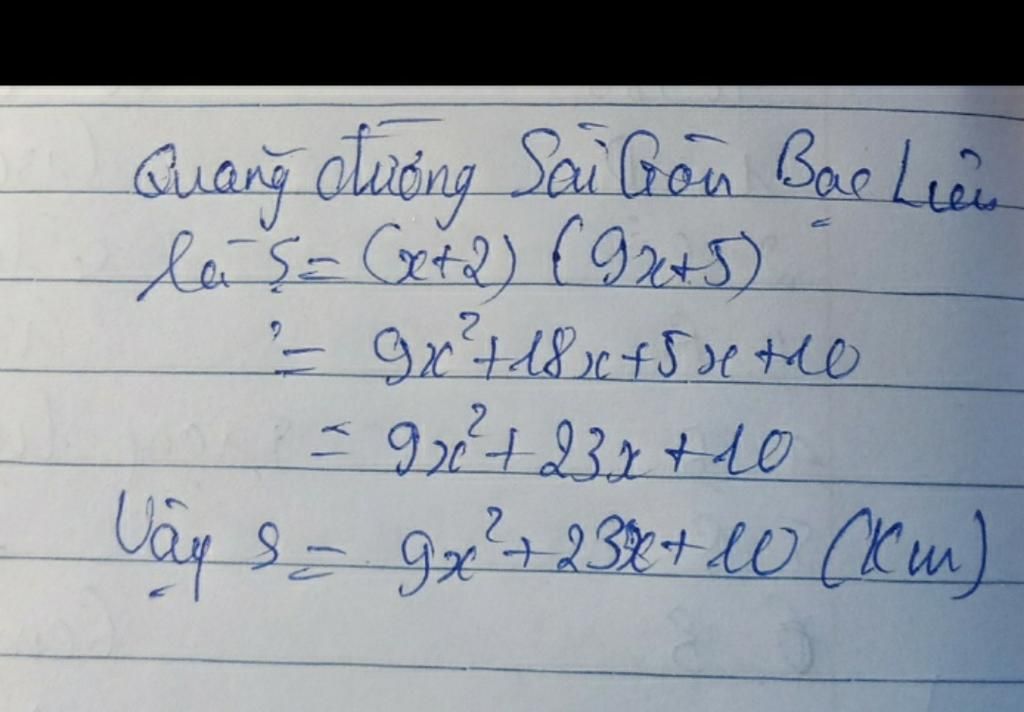 Quãng đường Sài Gòn Bạc Liêu
là S = (x+2) (9x+5)
= 9x² + 18x + 5x + 10
= 9x² + 23x + 10
Vậy S = 9x² + 23x + 10 (Km)